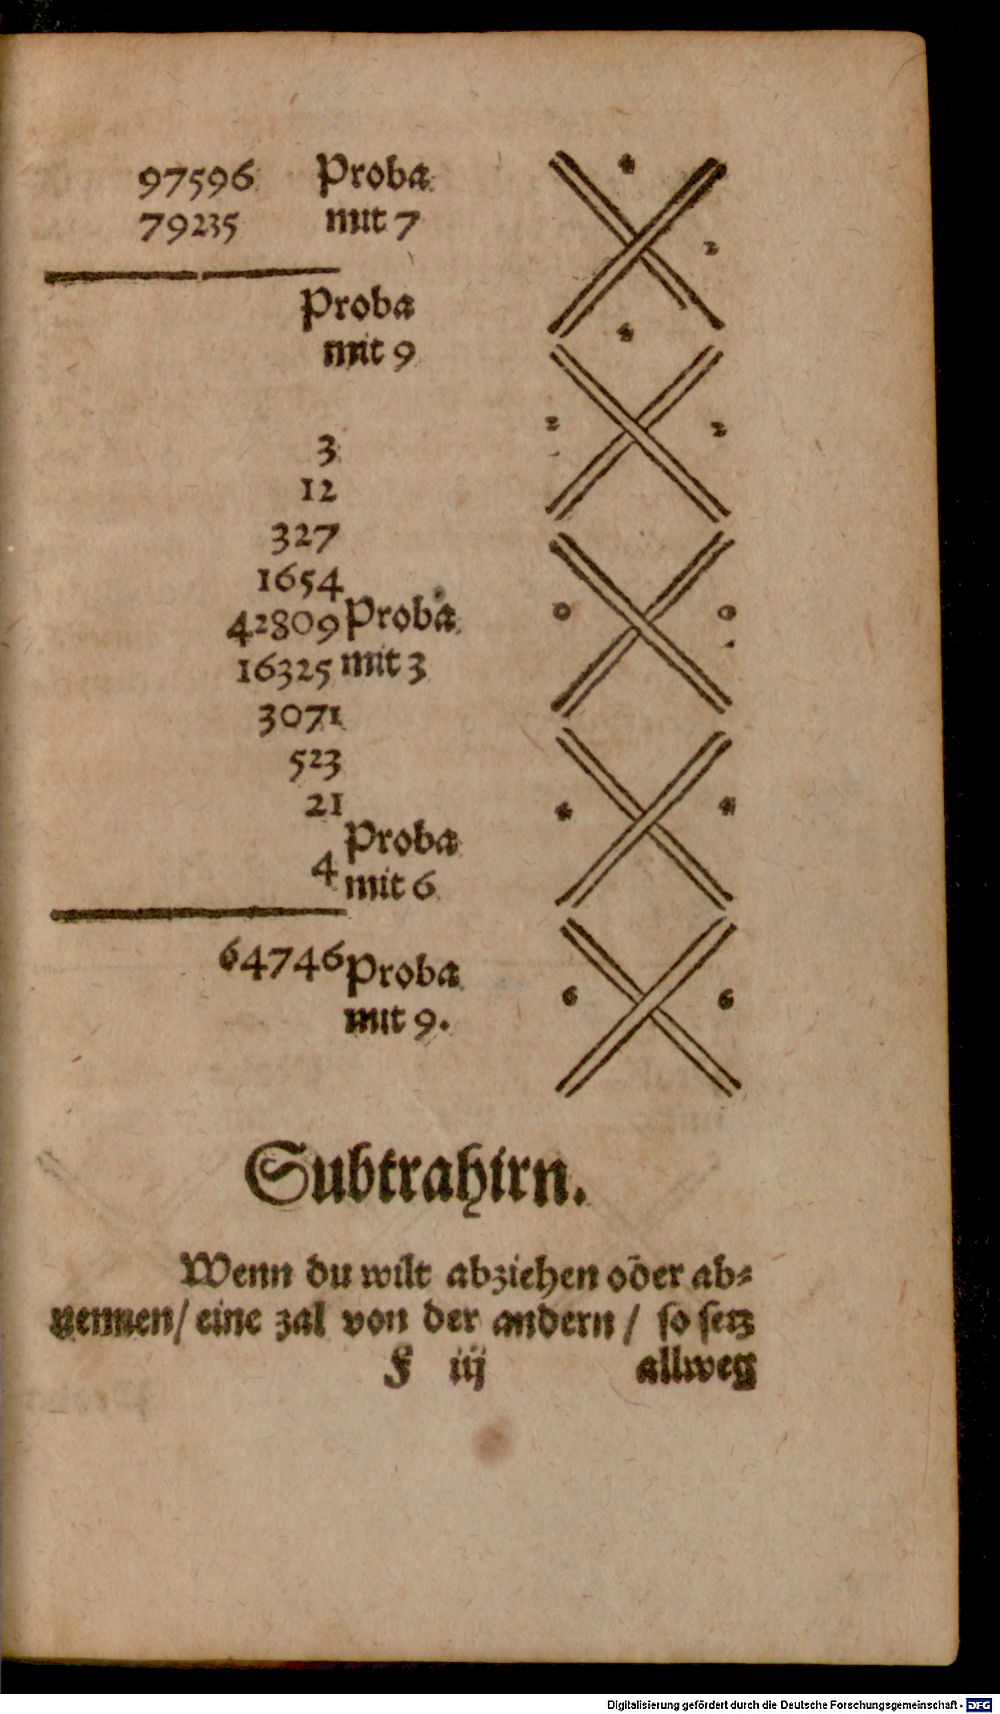 97596 Proba 4
79235 mit 7 2
Proba 4
mit 9 2 2
3
12
327
1654
42809 Proba 0 0
16325 mit 3
3071
523
21 4 4
Proba
4 mit 6
64746 Proba 6 6
mit 9.
Subtrahirn.
Wenn du wilt abziehen oder ab⸗
nemen / eine zal von der andern / so setz
F iij allweg
Digitalisierung gefördert durch die Deutsche Forschungsgemeinschaft - DFG